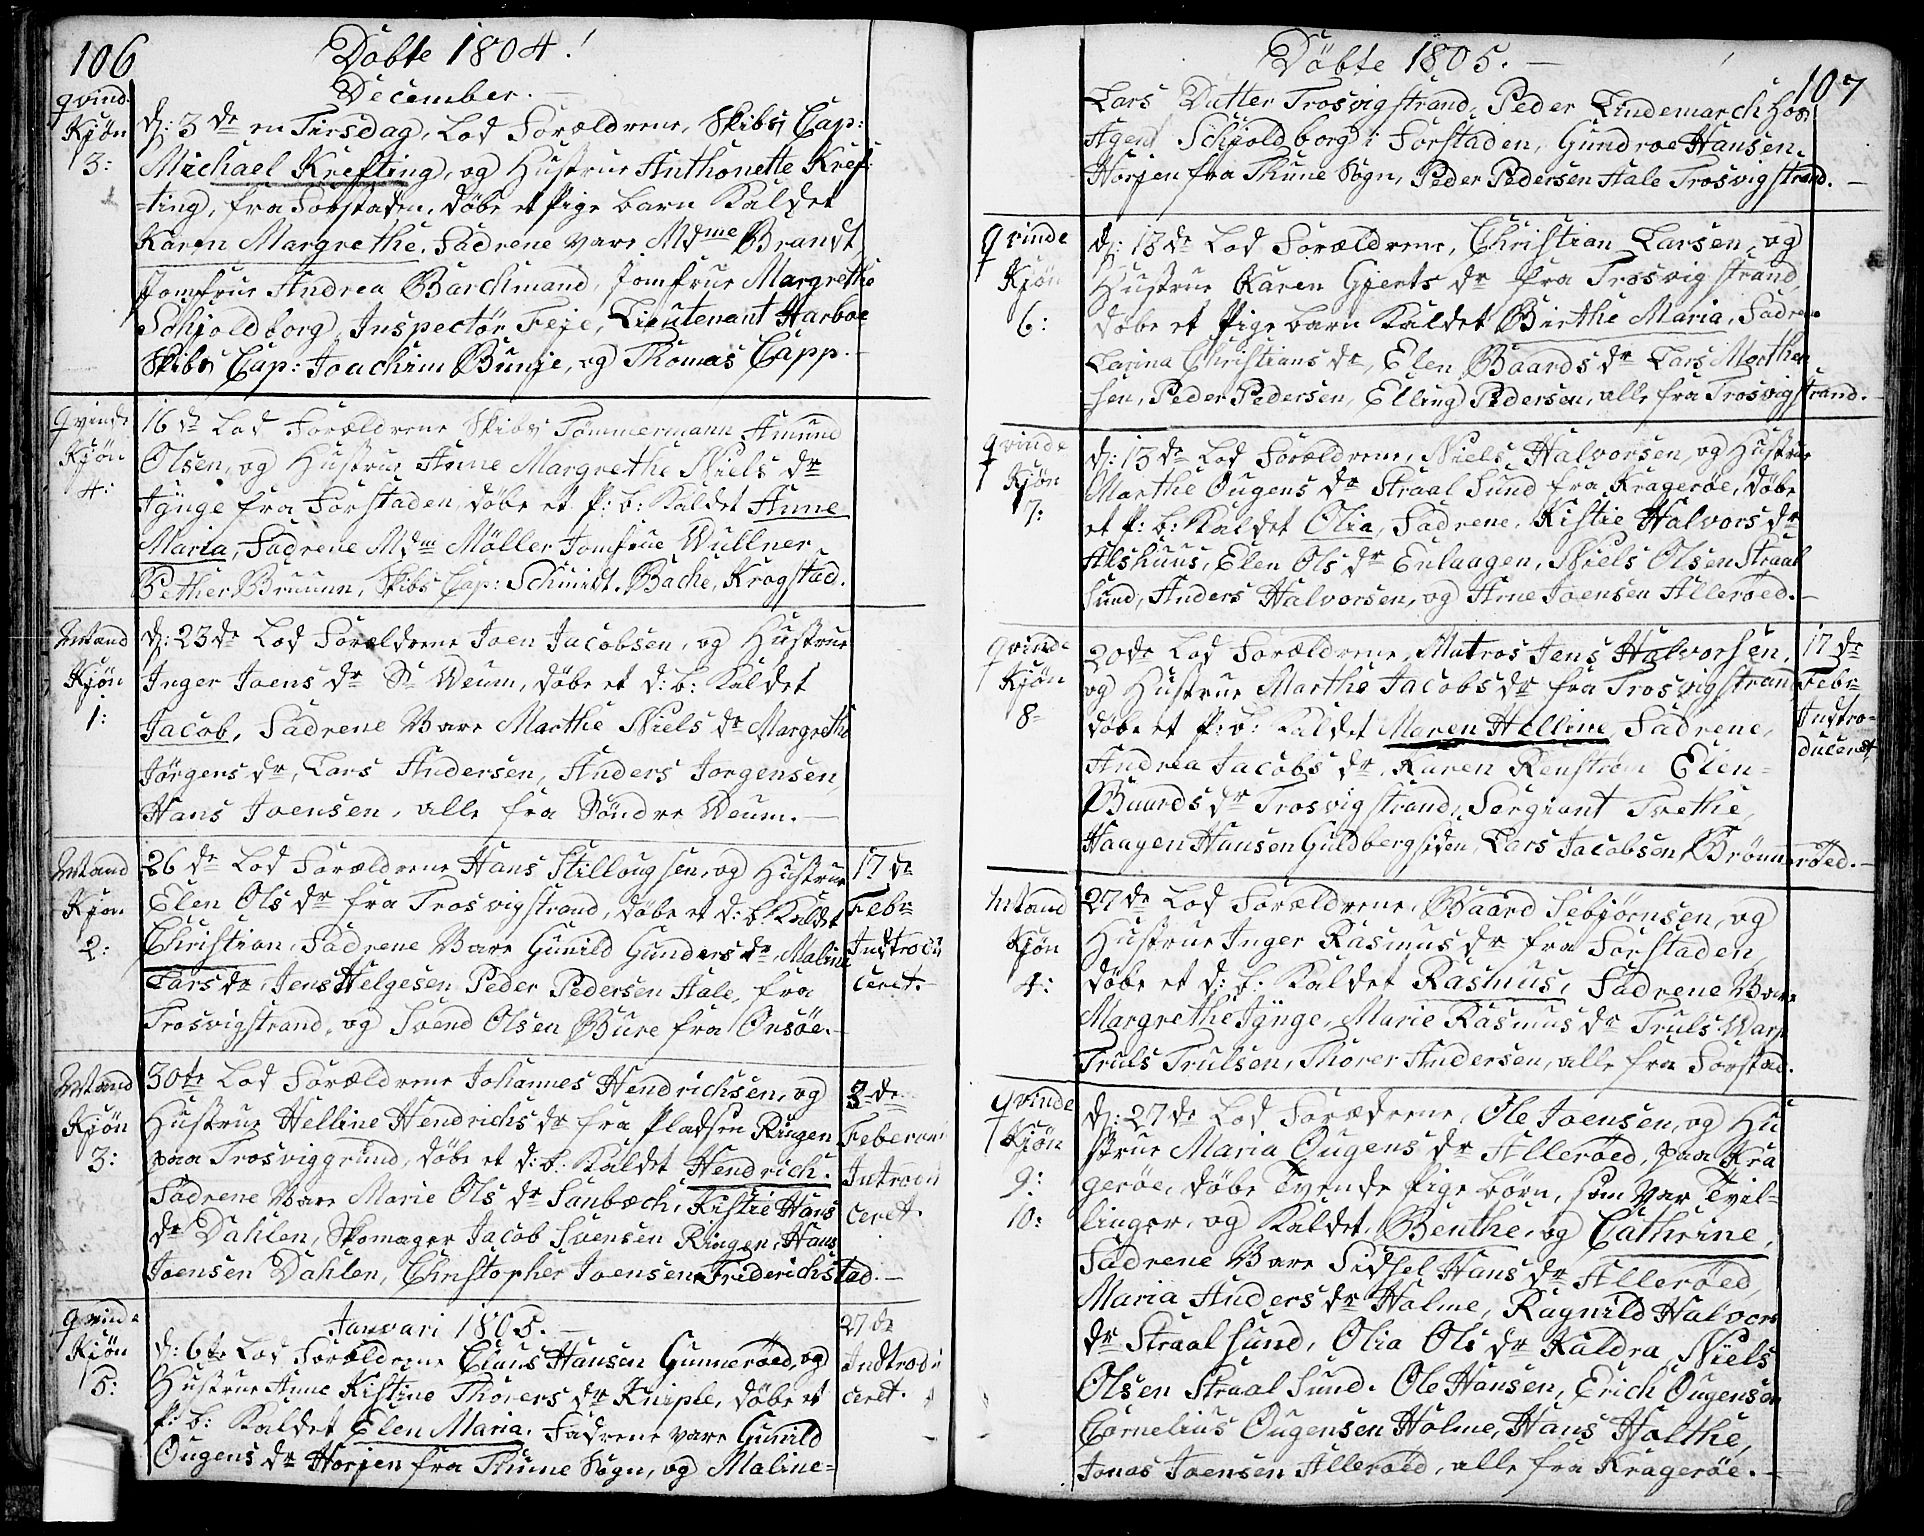 106
Döbte 1804!
December.
qvind. Kjön 3:
d: 3de en Tirsdag, Lod Forældrene, Skibs Cap:
Michael Krefting, og Hustrue Anthonette Kref-
-ting, fra Forstaden, döbe et Pige barn Kaldet
Karen Margrethe. Fadrene vare Mdme Brandt
Jomfrue Andrea Barchmand, Jomfrue Margrethe
Schjoldborg, Inspectör Feje, Lieutenant Harboe
Skibs Cap: Joachim Bunje, og Thomas Capp.
qvinde Kjön 4:
16de Lod Forældrene Skibs Tömmermann Amund
Olsen, og Hustrue Anne Margrethe Niels dr
Iynge fra Forstaden, döbe et P: b: Kaldet Anne
Maria, Fadrene Mdm Möller Jomfrue Wullner
Pether Bruuun, Skibs Cap: Schmidt. Bache, Kragstad.
Mand Kjön 1:
d: 23de Lod Forældrene Joen Jacobsen, og Hustrue
Inger Joens dr Sr Weum, döbe et d: b: Kaldet
Jacob, Fadrene Vare Marthe Niels dr Margrethe
Jörgens dr, Lars Andersen, Anders Jorgensen,
Hans Joensen, alle fra Söndre Weum.
Mand Kjön 2:
26de Lod Forældrene Hans Stillougsen, og Hustrue
Elen Ols dr fra Trosvigstrand, döbe et d: b Kaldet
Christian, Fadrene Vare Gunild Gunders dr Maline
Lars dr, Jens Helgesen Peder Pedersen Hale, fra
Trosvigstrand, og Svend Olsen Bure fra Onsöe.
17de
Febr
Indtrodu
ceret.
Mand Kjön 3:
30te Lod Forældrene Johannes Hendrichsen, og
Hustrue Helline Hendrichs dr fra Pladsen Ringen
paa Trosviggrund, döbe et d: b: Kaldet Hendrich.
Fadrene Vare Marie Ols dr Saubæch, Kistie Hans
dr Dahlen, Skomager Jacob Svensen Ringen, Hans
Joensen Dahlen, Christopher Joensen Friderichstad.
3de
Feberuar
Introdu
ceret.
Januari 1805.
qvinde Kjön 5:
d: 6te Lod Forældrene Claus Hansen Gunneröed, og
Hustrue Anne Kistine Thorers dr Kniple, döbe et
P: b: Kaldet Elen Maria. Fadrene vare Gunild
Ougens dr Horjen fra Thune Sogn, og Maline-
27de
Indtrodu
ceret.
Döbte 1805.
107
Lars Datter Trosvigstrand, Peder Lindemarch hos
Agent Schjoldborg i Forstaden, Gundroe Hansen,
Horjen fra Thune Sogn, Peder Pedersen Hale Trosvigstrand.
qvinde Kjön 6:
d: 13de Lod Forældrene, Christian Larsen, og
Hustrue Karen Gjerts dr fra Trosvigstrand,
döbe et Pige barn Kaldet Birthe Maria, Fadrene
Larina Christians dr, Elen Baards dr Lars Morthen
sen, Peder Pedersen, Elling Pedersen, alle fra Trosvigstrand.
qvinde Kjön 7:
d: 13de Lod Forældrene, Niels Halvorsen, og Hustrue
Marthe Ougens dr Straal Sund fra Kragerøe, döbe
et P: b: Kaldet Olia, Fadrene, Kistie Halvors dr
Alshuus, Elen Ols dr Enhaugen, Niels Olsen Straal
Sund, Anders Halvorsen, og Arne Joensen Alleröed.
qvinde Kjön 8
20de Lod Forældrene, Matros Jens Halvorsen,
og Hustrue Marthe Jacobs dr fra Trosvigstrand
döbe et P: b: Kaldet Maren Helline, Fadrene,
Andrea Jacobs dr, Karen Renström Elen-
Baards dr Trosvigstrand, Sergiant Trethe,
Haagen Hansen Guldbergsiden, Lars Jacobsen, Brönneröed.
17de
Febr
Indtro-
duceret
Mand Kjön 4:
27de Lod Forældrene, Baard Sebjörnsen, og
Hustrue Inger Rasmus dr fra Forstaden,
döbe et d: b: Kaldet Rasmus, Fadrene Vare
Margrethe Iynge, Marie Rasmus dr Truls Warp
Truls Trulsen, Thorer Andersen, alle fra Forstad.
qvinde Kjön 9: 10:
d: 27de Lod Forældrene, Ole Joensen, og Hu
strue Maria Ougens dr Alleröed, paa Kra
geröe, döbe Tvende Pige börn, som Var Tvil-
linger, og Kaldet, Benthe, og Cathrine,
Fadrene Vare Sidsel Hans dr Alleröed,
Maria Anders dr Holme, Ragnild Halvors
dr Straal Sund, Olia Ols dr Kaldra, Niels
Olsen Straal Sund. Ole Hansen, Erich Ougensen
Cornelius Ougensen Holme, Hans Holthe,
Jonas Joensen Alleröed, alle fra Krageröe.